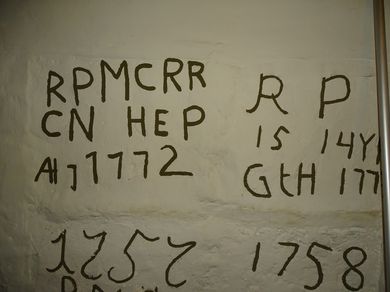 RPMCRR
CN HEP
1772
R P
15 14Y
GtH 177
1757
1758